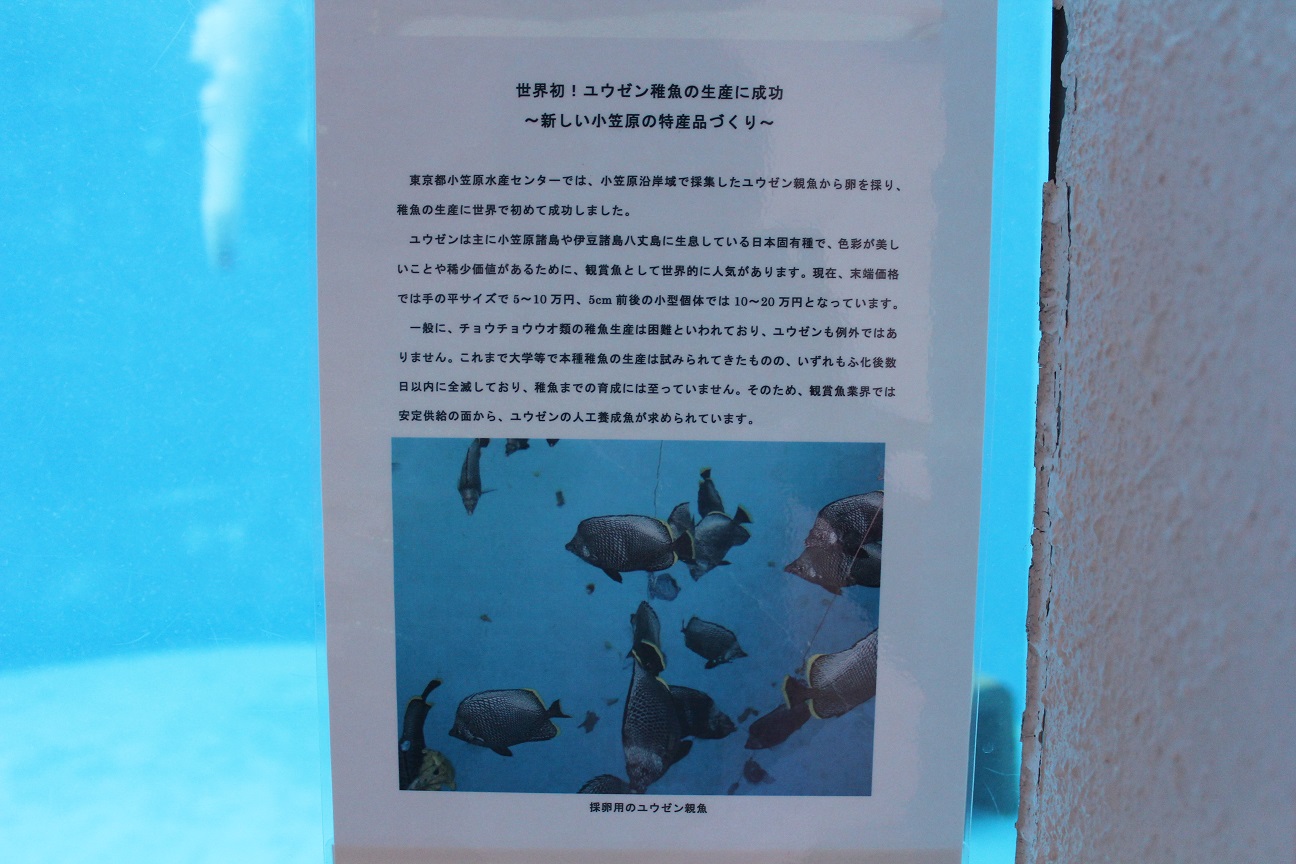 世界初！ユウゼン稚魚の生産に成功
～新しい小笠原の特産品づくり～
東京都小笠原水産センターでは、小笠原沿岸域で採集したユウゼン親魚から卵を採り、
稚魚の生産に世界で初めて成功しました。
ユウゼンは主に小笠原諸島や伊豆諸島八丈島に生息している日本固有種で、色彩が美し
いことや稀少価値があるために、観賞魚として世界的に人気があります。現在、末端価格
では手の平サイズで 5～10 万円、5cm 前後の小型個体では 10～20 万円となっています。
一般に、チョウチョウウオ類の稚魚生産は困難といわれており、ユウゼンも例外ではあ
りません。これまで大学等で本種稚魚の生産は試みられてきたものの、いずれもふ化後数
日以内に全滅しており、稚魚までの育成には至っていません。そのため、観賞魚業界では
安定供給の面から、ユウゼンの人工養成魚が求められています。
採卵用のユウゼン親魚